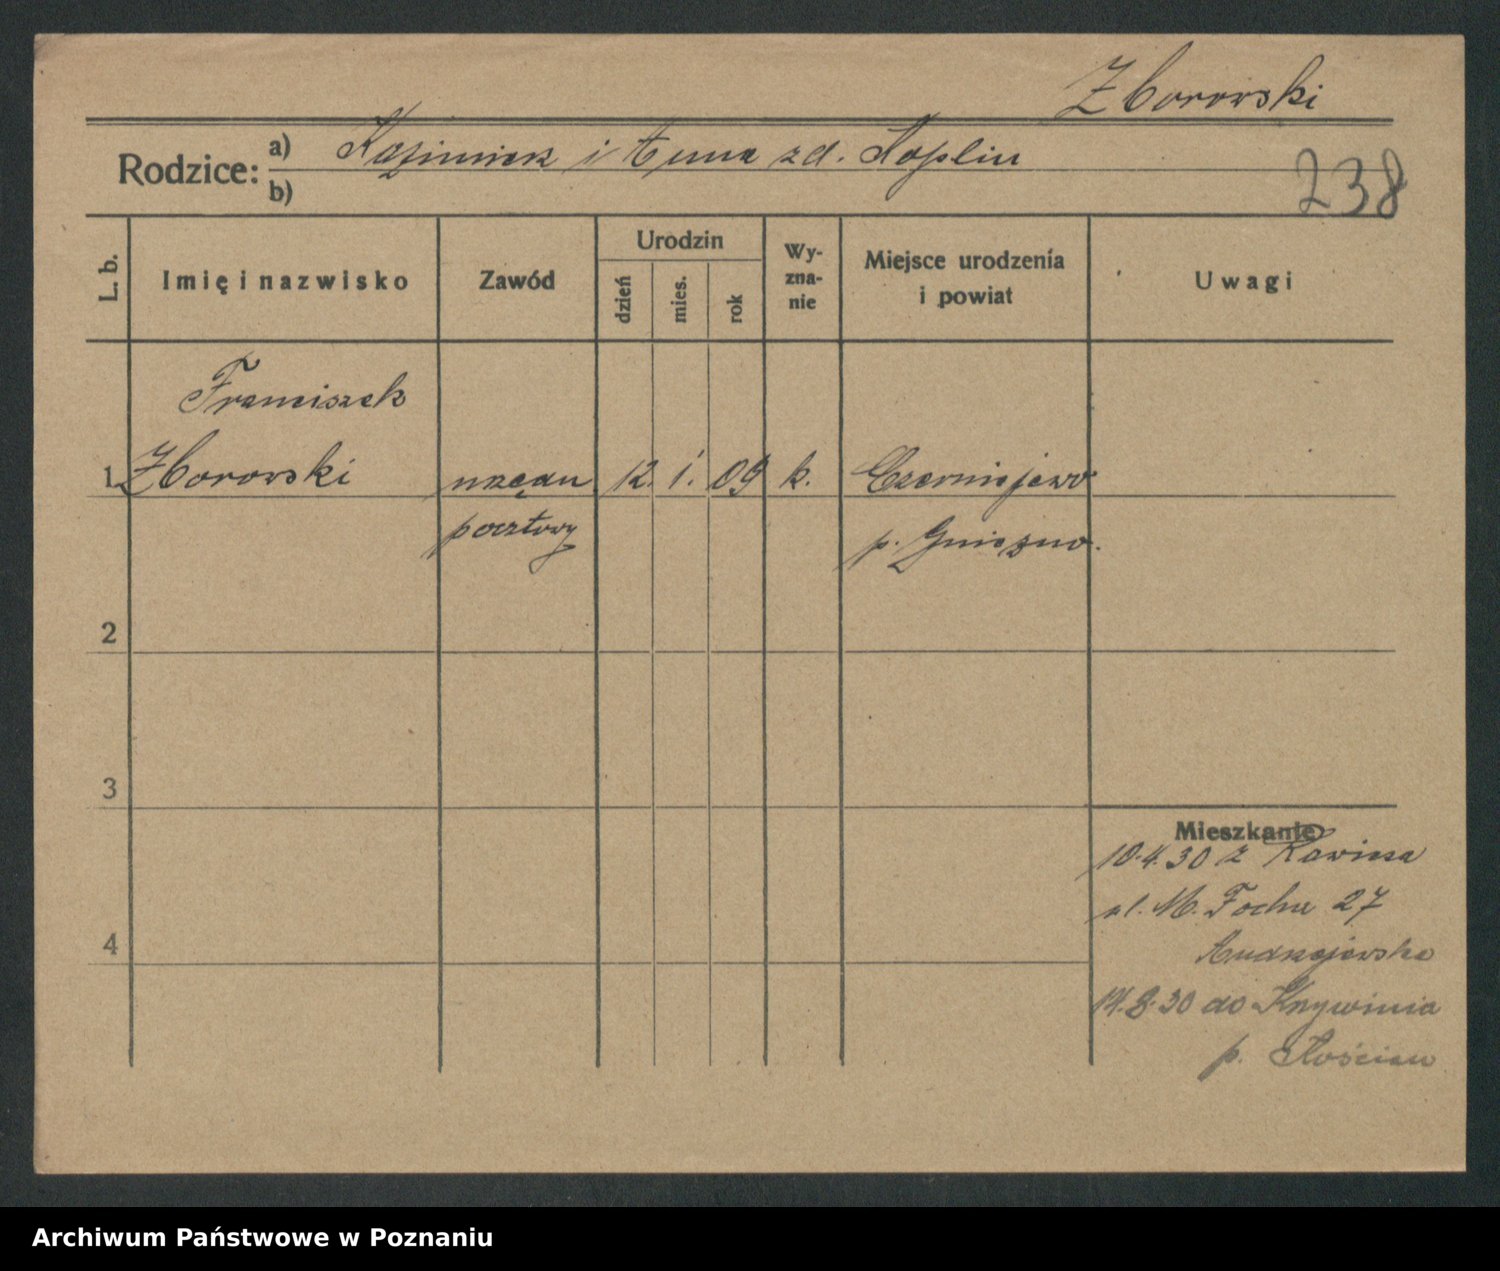 Zborowski
Rodzice: a) Kazimierz i Anna zd. Koplin
b)
238
L. b.
Imię i nazwisko
Zawód
Urodzin
dzień
mies.
rok
Wy-
zna-
nie
Miejsce urodzenia
i powiat
Uwagi
Franciszek
1. Zborowski urzędn 12. 1. 09 k. Czerniejewo
pocztowy p. Gniezno.
2
3
4
Mieszkanie
10.4.30 z Rawicza
ul. M. Focha 27
Andrzejewska
14.8.30 do Krzywinia
p. Kościan
Archiwum Państwowe w Poznaniu